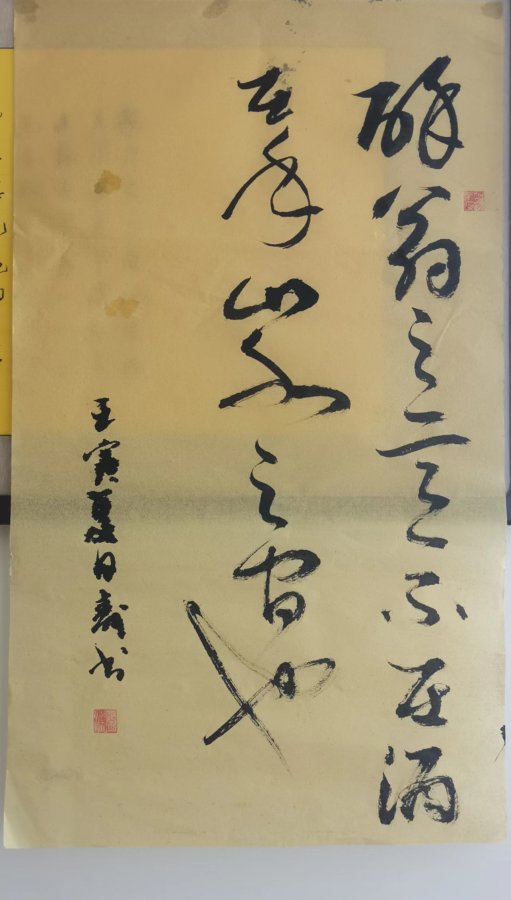 醉翁之意不在酒
在乎山水之間也
壬寅夏日书